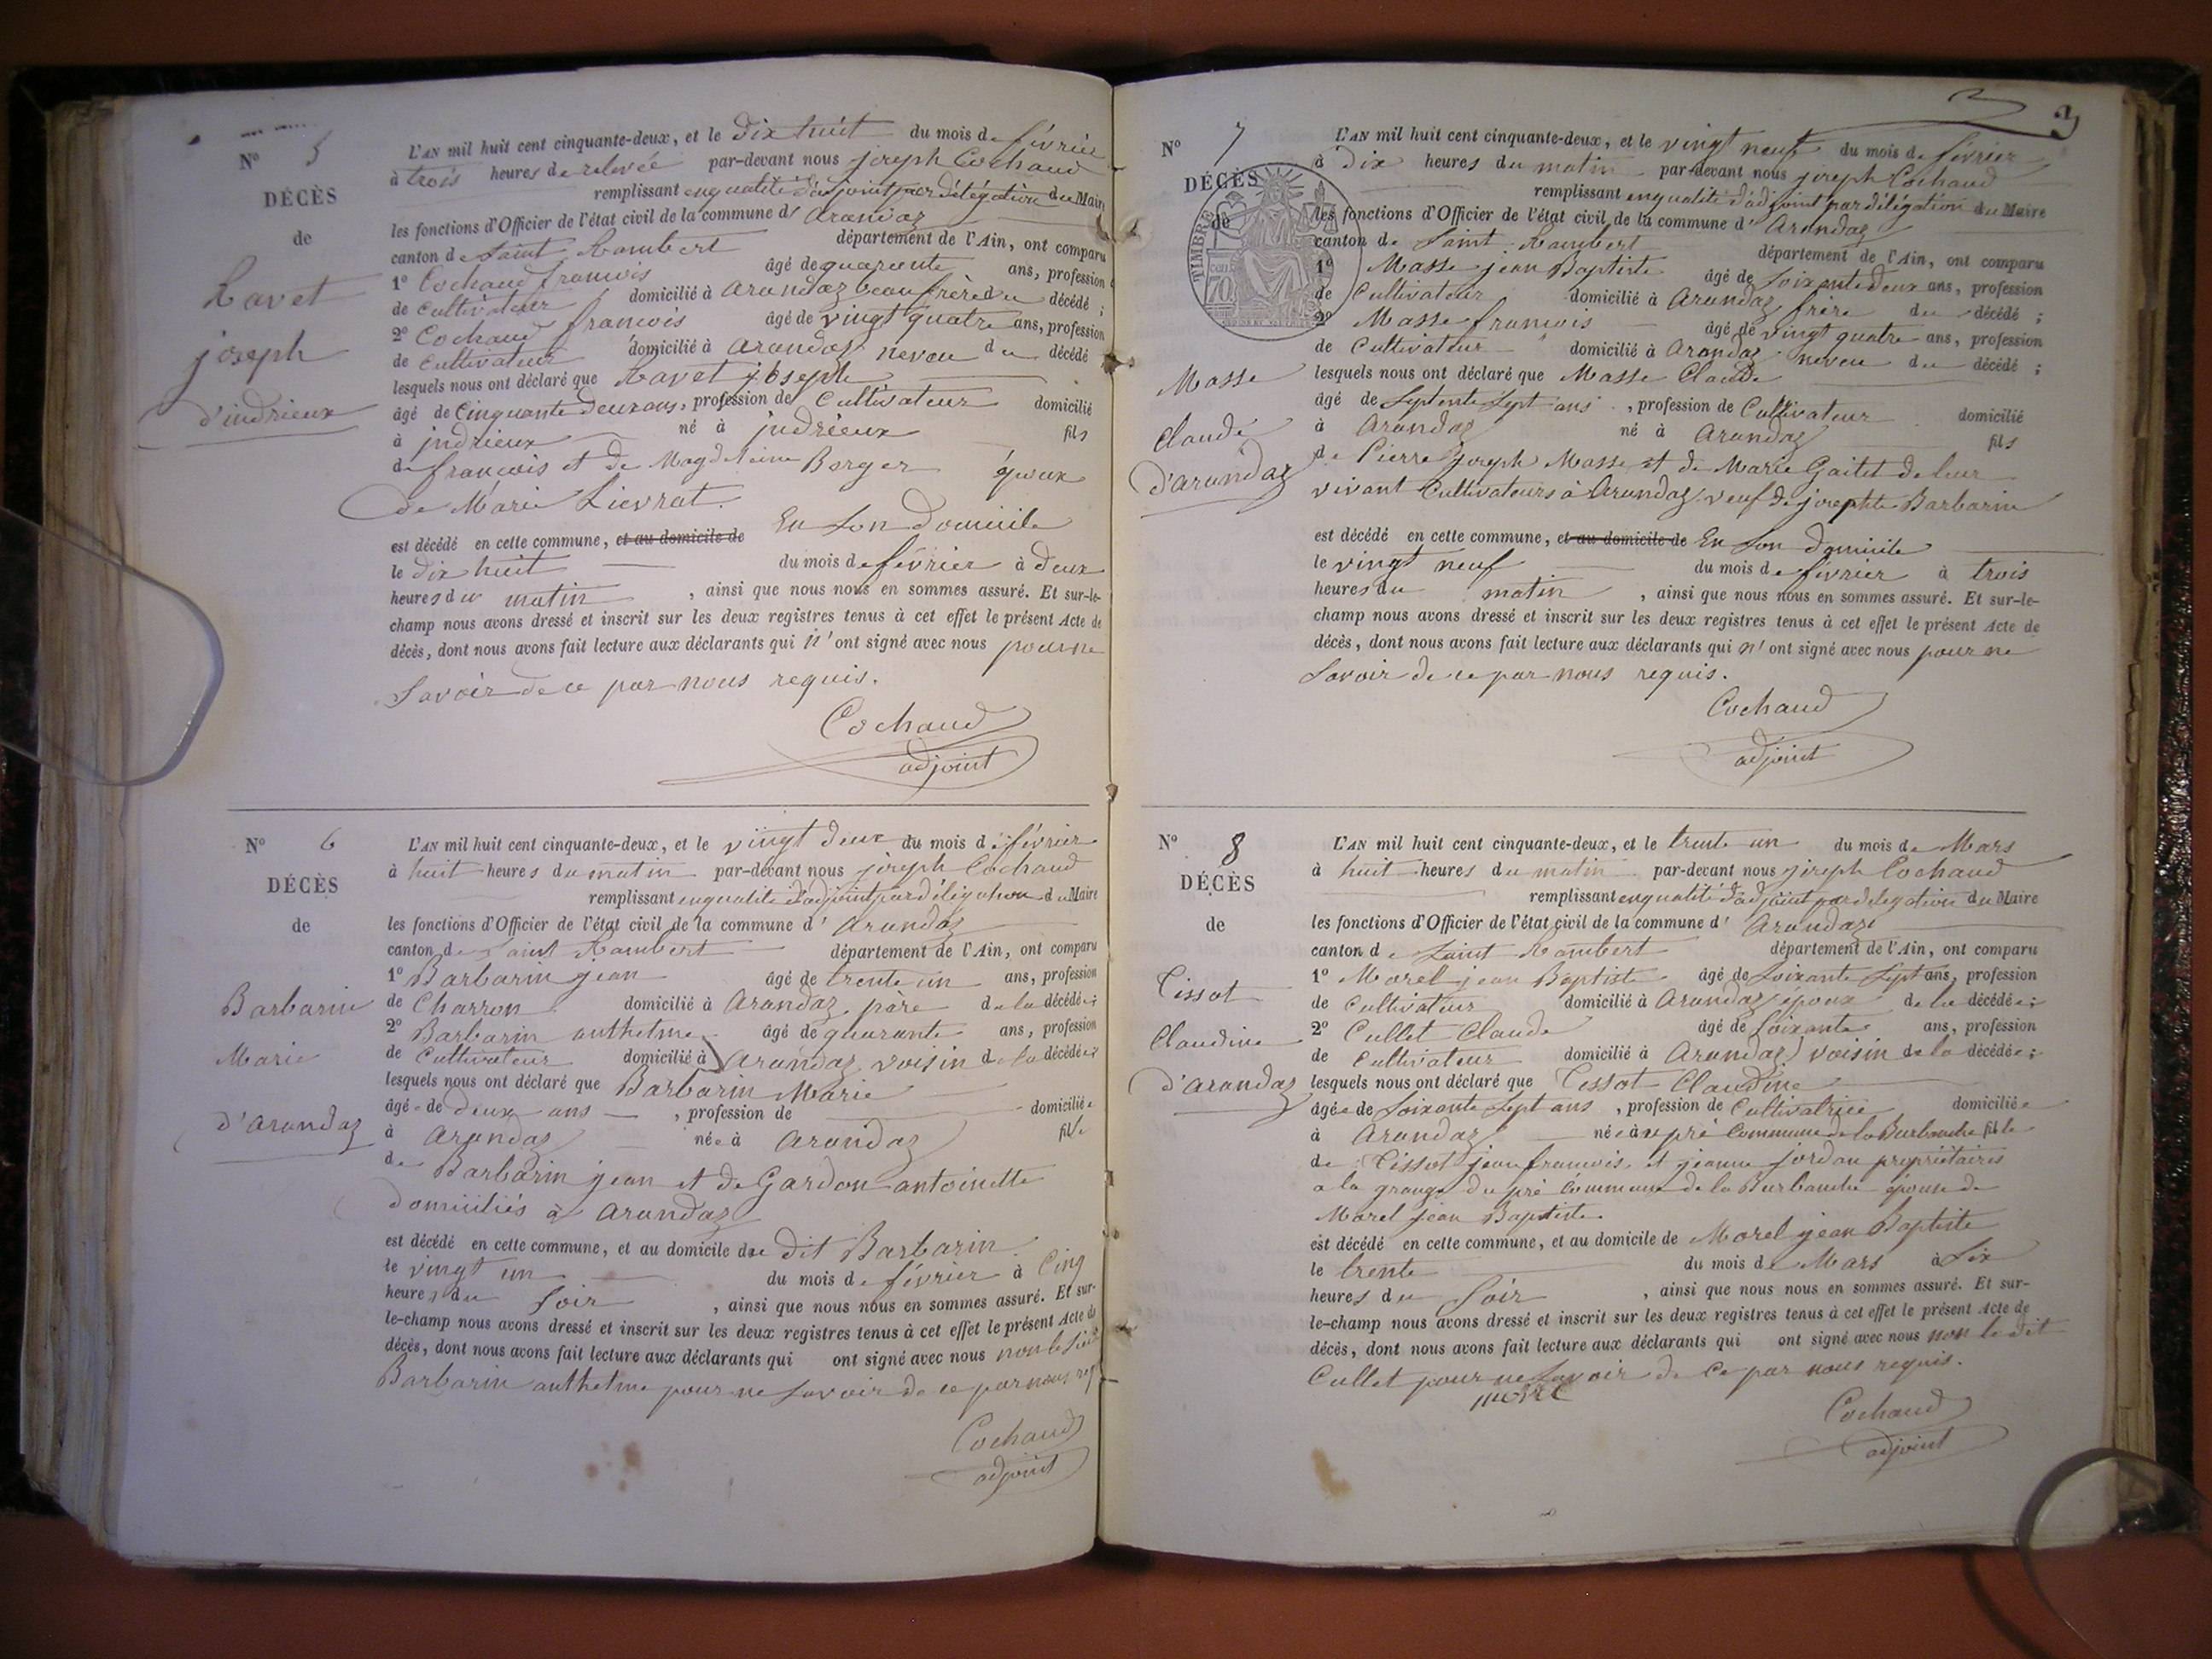 N° 5
DÉCÈS
de
Ravet
joseph
d'indrieux
L'AN mil huit cent cinquante-deux, et le dix huit du mois de février
à trois heures de relevée par-devant nous joseph Cochaud
remplissant en qualité d'adjoint par délégation du Maire
les fonctions d'Officier de l'état civil de la commune d' Arandaz
canton de Saint Rambert département de l'Ain, ont comparu
1° Cochaud francois âgé de quarante ans, profession
de Cultivateur domicilié à Arandaz beau frère du décédé ;
2° Cochaud francois âgé de vingt quatre ans, profession
de Cultivateur domicilié à Arandaz neveu du décédé
lesquels nous ont déclaré que Ravet joseph
âgé de Cinquante deux ans, profession de Cultivateur domicilié
à jndrieux né à jndrieux fils
de francois et de Magdeleine Berger époux
de Marie Lievrat.
est décédé en cette commune, et au domicile de En Son Domicile
le dix huit du mois de février à deux
heures du matin , ainsi que nous nous en sommes assuré. Et sur-le-
champ nous avons dressé et inscrit sur les deux registres tenus à cet effet le présent Acte de
décès, dont nous avons fait lecture aux déclarants qui n'ont signé avec nous pour ne
Savoir de ce par nous requis.
Cochaud
adjoint
N° 6
DÉCÈS
de
Barbarin
Marie
d'Arandaz
L'AN mil huit cent cinquante-deux, et le vingt deux du mois de février
à huit heures du matin par-devant nous joseph Cochaud
remplissant en qualité d'adjoint par délégation du Maire
les fonctions d'Officier de l'état civil de la commune d' Arandaz
canton de Saint Rambert département de l'Ain, ont comparu
1° Barbarin jean âgé de trente un ans, profession
de Charron domicilié à Arandaz père de la décédée ;
2° Barbarin anthelme âgé de quarante ans, profession
de Cultivateur domicilié à Arandaz voisin de la décédée
lesquels nous ont déclaré que Barbarin Marie
âgée de deux ans , profession de domiciliée
à Arandaz née à Arandaz fille
de Barbarin jean et de Gardon antoinette
domiciliés à Arandaz
est décédé en cette commune, et au domicile du dit Barbarin
le vingt un du mois de février à Cinq
heures du Soir , ainsi que nous nous en sommes assuré. Et sur-
le-champ nous avons dressé et inscrit sur les deux registres tenus à cet effet le présent Acte de
décès, dont nous avons fait lecture aux déclarants qui ont signé avec nous non le dit
Barbarin anthelme pour ne Savoir de ce par nous req
Cochaud
adjoint
3
N° 7
DÉCÈS
de
TIMBRE
70
Masse
Claude
d'arandaz
L'AN mil huit cent cinquante-deux, et le vingt neuf du mois de février
à Dix heures du matin par-devant nous joseph Cochaud
remplissant en qualité d'adjoint par délégation du Maire
les fonctions d'Officier de l'état civil de la commune d' Arandaz
canton de Saint Rambert département de l'Ain, ont comparu
1° Masse jean Baptiste âgé de Soixante deux ans, profession
de Cultivateur domicilié à Arandaz frère du décédé ;
2° Masse francois âgé de vingt quatre ans, profession
de Cultivateur domicilié à Arandaz neveu du décédé ;
lesquels nous ont déclaré que Masse Claude
âgé de Septente Sept ans , profession de Cultivateur domicilié
à Arandaz né à Arandaz fils
de Pierre joseph Masse et de Marie Gaitet de leur
vivant Cultivateurs à Arandaz, veuf de josephte Barbarin
est décédé en cette commune, et au domicile de En Son Domicile
le vingt neuf du mois de février à trois
heures du matin , ainsi que nous nous en sommes assuré. Et sur-le-
champ nous avons dressé et inscrit sur les deux registres tenus à cet effet le présent Acte de
décès, dont nous avons fait lecture aux déclarants qui n'ont signé avec nous pour ne
Savoir de ce par nous requis.
Cochaud
adjoint
N° 8
DÉCÈS
de
Tissot
Claudine
d'arandaz
L'AN mil huit cent cinquante-deux, et le trente un du mois de Mars
à huit heures du matin par-devant nous joseph Cochaud
remplissant en qualité d'adjoint par délégation du Maire
les fonctions d'Officier de l'état civil de la commune d' Arandaz
canton de Saint Rambert département de l'Ain, ont comparu
1° Morel jean Baptiste âgé de Soixante Sept ans, profession
de Cultivateur domicilié à Arandaz époux de la décédée ;
2° Cullet Claude âgé de Soixante ans, profession
de Cultivateur domicilié à Arandaz voisin de la décédée ;
lesquels nous ont déclaré que Tissot Claudine
âgée de Soixante Sept ans , profession de Cultivatrice domiciliée
à Arandaz née à pré Commune de la Burbanche fille
de Tissot jean francois, et jeanne jordan propriétaires
a la grange du pré Commune de la Burbanche épouse de
Morel jean Baptiste
est décédé en cette commune, et au domicile de Morel jean Baptiste
le trente du mois de Mars à Six
heures du Soir , ainsi que nous nous en sommes assuré. Et sur-
le-champ nous avons dressé et inscrit sur les deux registres tenus à cet effet le présent Acte de
décès, dont nous avons fait lecture aux déclarants qui ont signé avec nous non le dit
Cullet pour ne Savoir de Ce par nous requis.
morel
Cochaud
adjoint